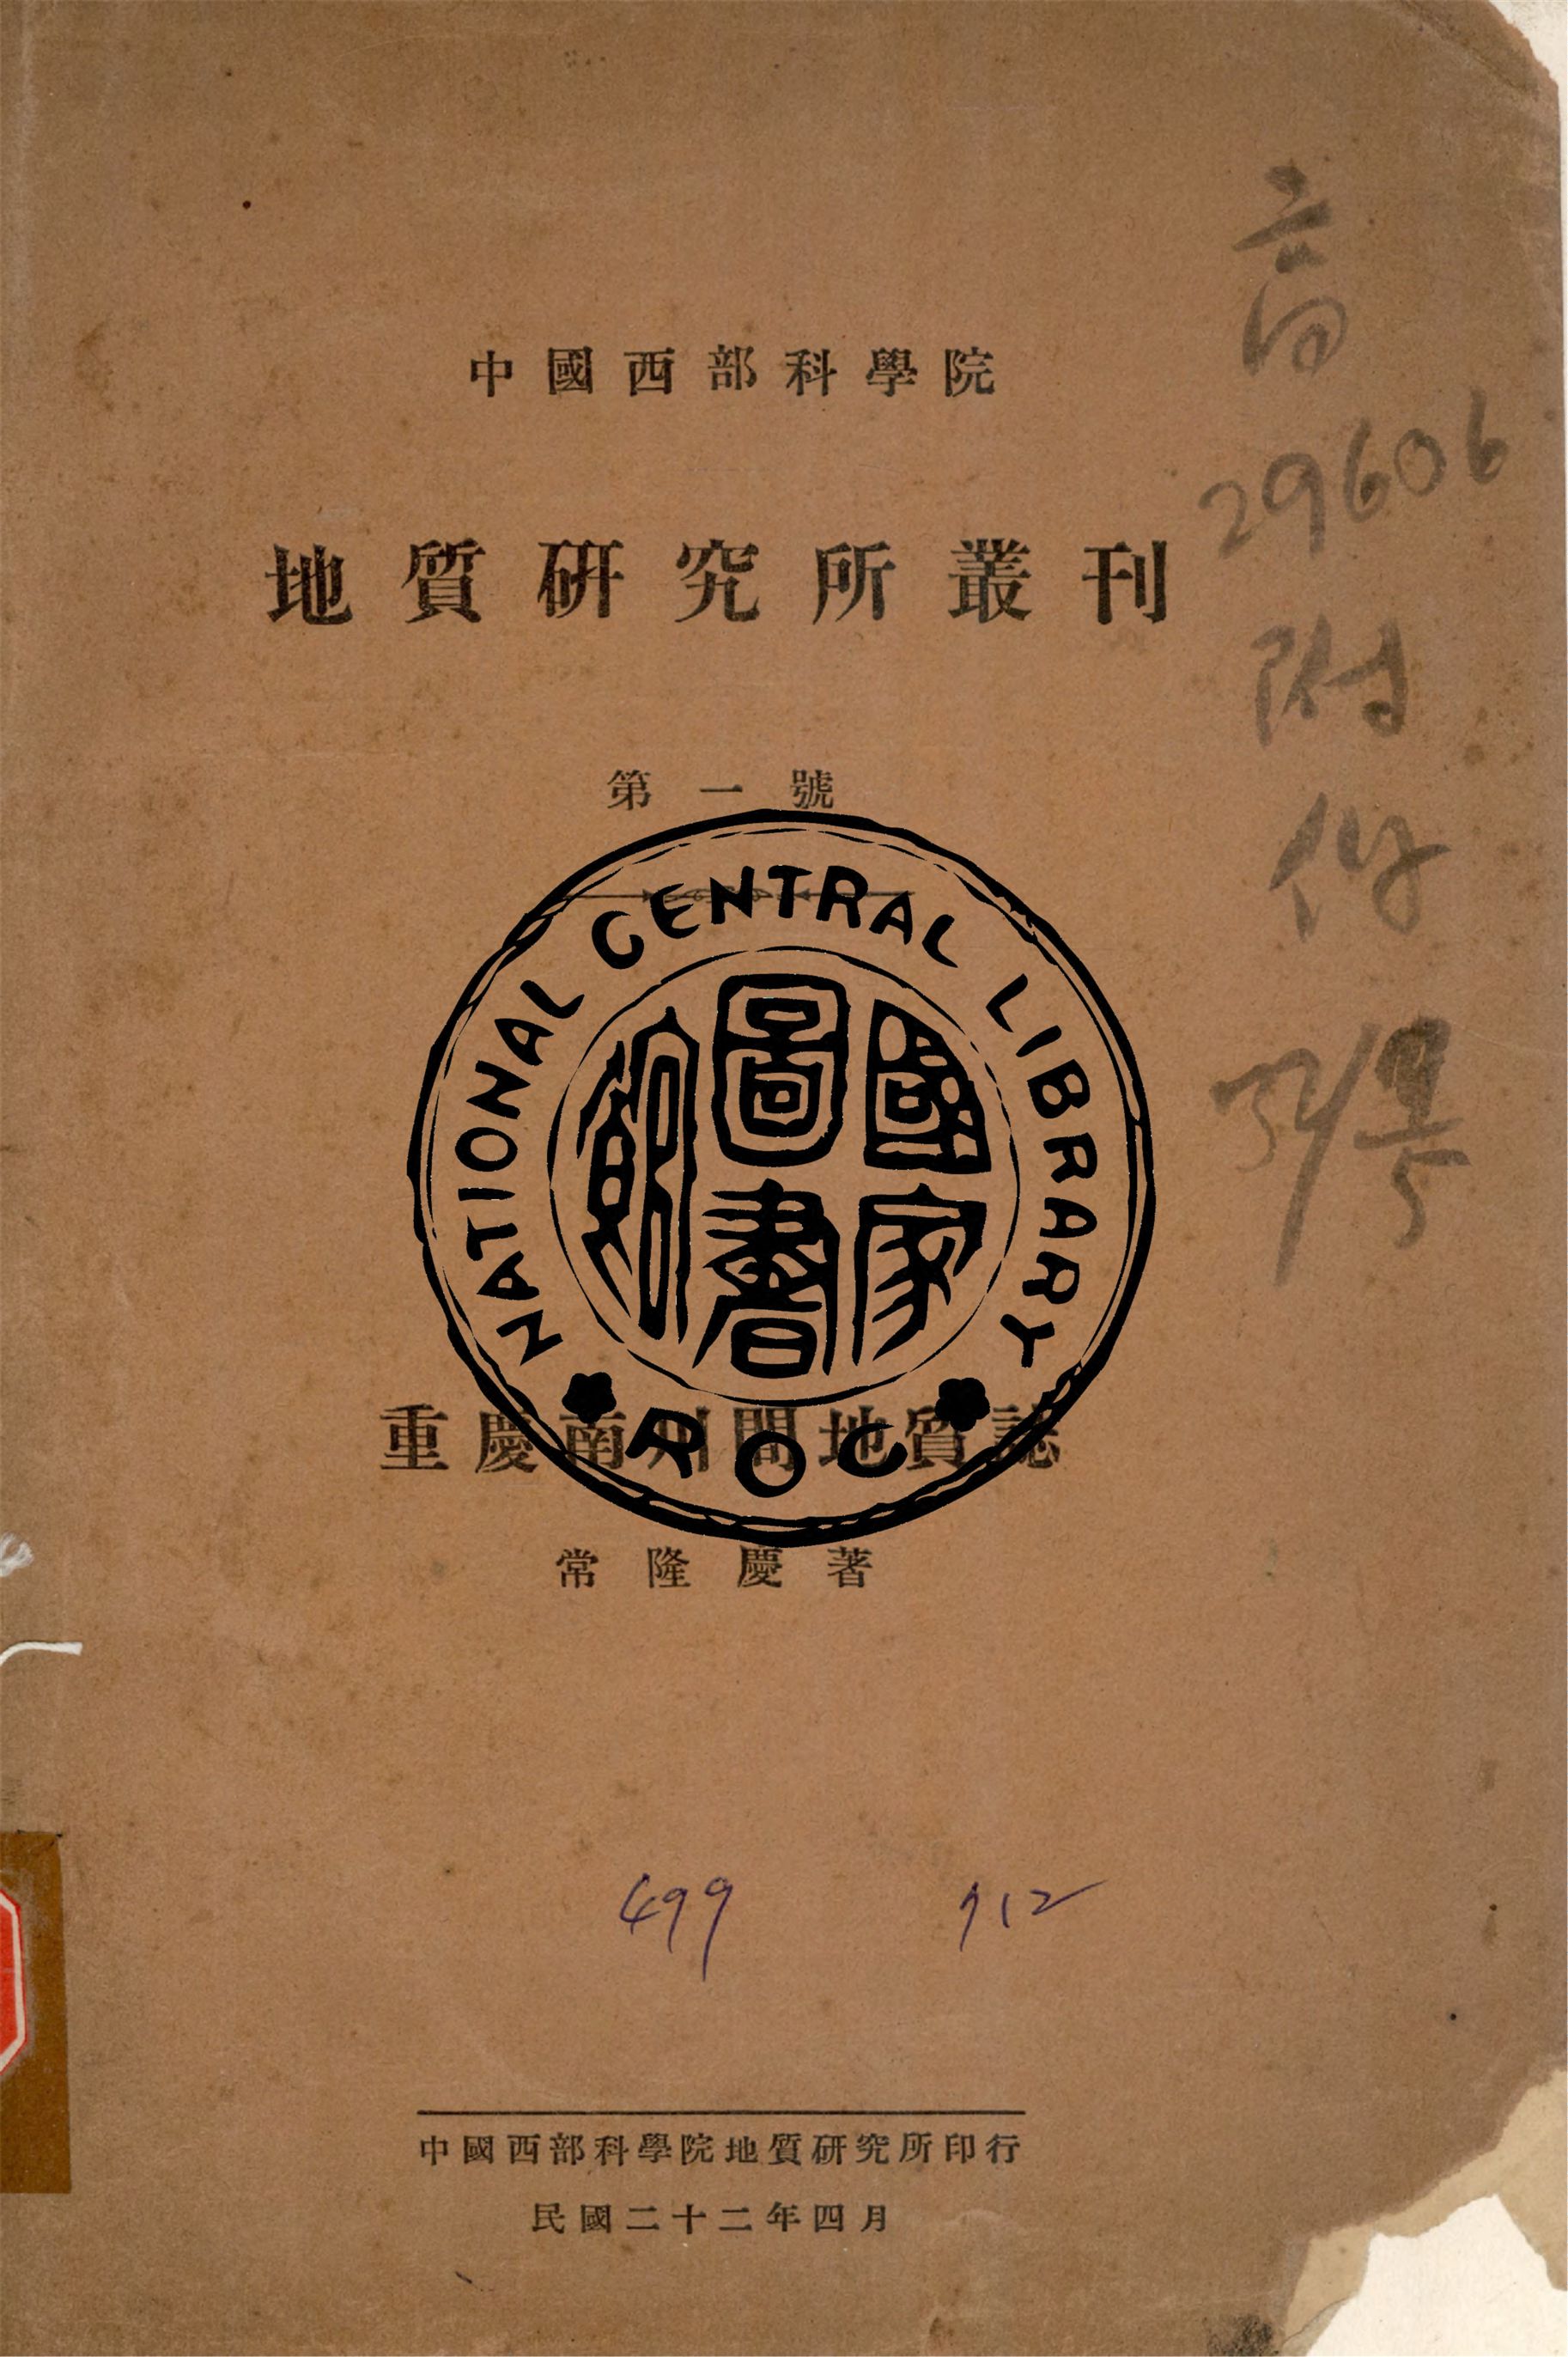 中國西部科學院
地質研究所叢刊
第一號
NATIONAL CENTRAL LIBRARY
國家圖書館
ROC
重慶南川間地質誌
常隆慶著
29606
附
499 712
中國西部科學院地質研究所印行
民國二十二年四月